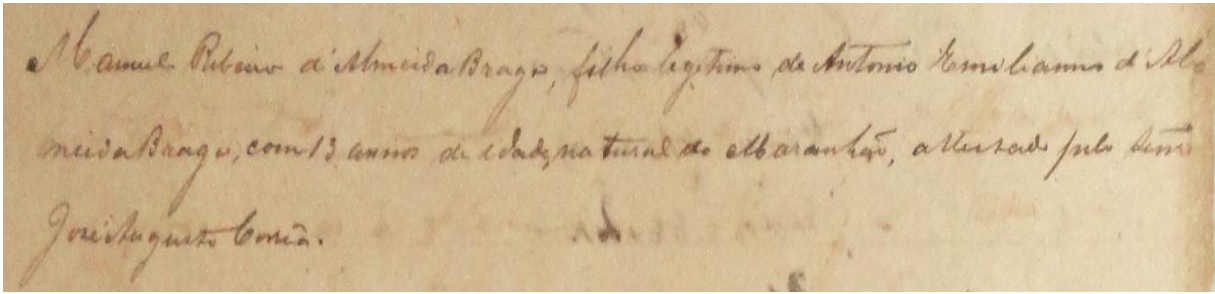 Manuel Ribeiro d'Almeida Braga, filho legitimo de Antonio Emilianno d'Al
meida Braga, com 13 annos de idade, natural do Maranhão, attestado pelo
José Augusto Corrêa.